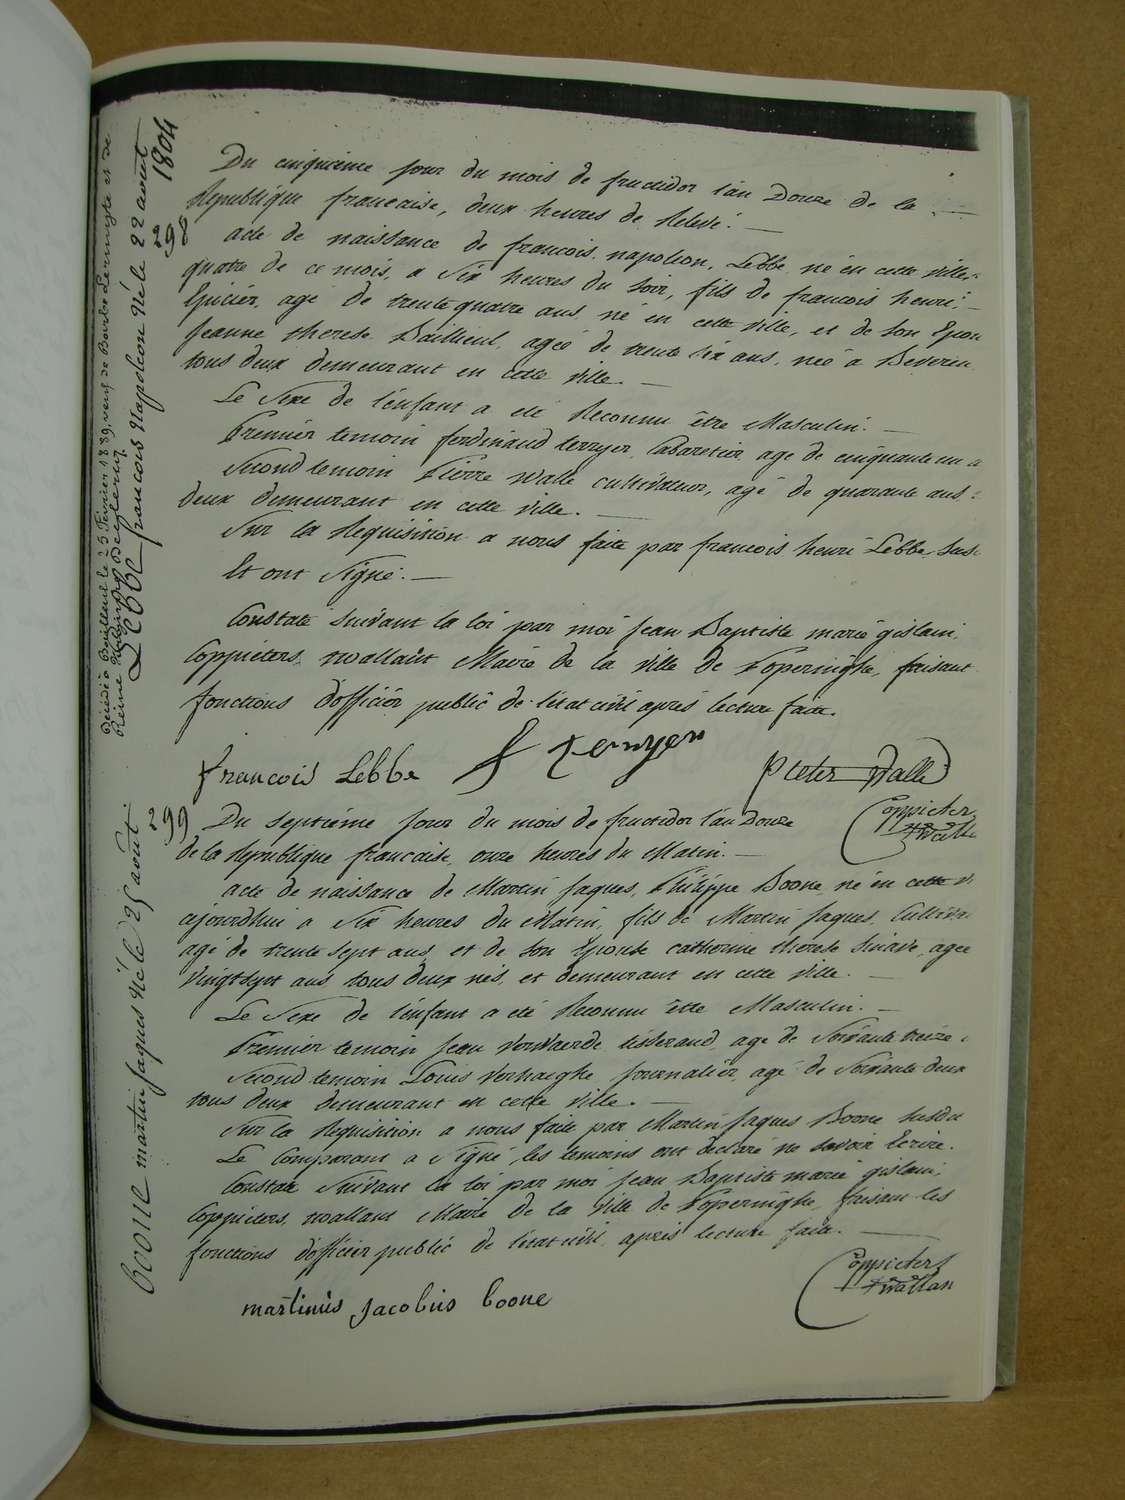 Décédé à Bouillant le 25 Février 1889, veuf de Bourbe Lermyte et de
Reine
Lebbe francois Napoleon Né le 22 aout
1804
298
Du cinquieme jour du mois de fructidor l'an Douze de la
Republique francaise, deux heures de Relevé.
acte de naissance de francois, napoleon, Lebbe, né en cette ville,
quatre de ce mois, a Six heures du Soir, fils de francois henri
Epicier, agé de trente quatre ans, né en cette ville, et de Son Epou
Jeanne therese Baillieul, agée de trente Six ans, née a Beveren,
tous deux demeurant en cette ville.
Le Sexe de l'enfant a eté Reconnu être Masculin.
Premier temoin ferdinand terryer, Cabaretier agé de cinquante un a
Second temoin Pierre Walle cultivateur, agé de quarante ans
deux demeurant en cette ville.
Sur la Requisition a nous faite par francois henri Lebbe, Sus
Et ont Signé.
Constaté Suivant la loi par moi Jean Baptiste marie gislain
Coppieters, wallaut Maire de la ville de Poperinghe, faisant
fonctions d'officier public de l'etat civil après lecture faite.
francois Lebbe
Pieter Walle
Coppieters
299
Du Septieme jour du mois de fructidor l'an Douze
de la Republique francaise, onze heures du Matin.
acte de naissance de Martin Jaques, Philippe Boone né en cette vi
ajourdhui a Six heures du Matin, fils de Martin Jaques, Cultiva
agé de trente Sept ans, et de Son Epouse catherine therese Sinave, agee
Vingt Sept ans, tous deux nés, et demeurant en cette ville.
Le Sexe de l'enfant a eté Reconnu être Masculin.
Premier temoin Jean Verhaerde tisserand, agé de Soixante treize
Second temoin Louis Verhaeghe Journalier, agé de Soixante deux
tous deux demeurant en cette ville.
Sur la Requisition a nous faite par Martin Jaques Boone Susdi
Le Comparant a Signé, les temoins ont declaré ne Savoir Ecrire.
Constaté Suivant la loi par moi Jean Baptiste marie gislain
Coppieters, wallaut Maire de la Ville de Poperinghe, faisant les
fonctions d'officier public de l'etat civil après lecture faite.
martinus jacobus boone
Coppieters
boone martin Jaques Né le 25 aout.